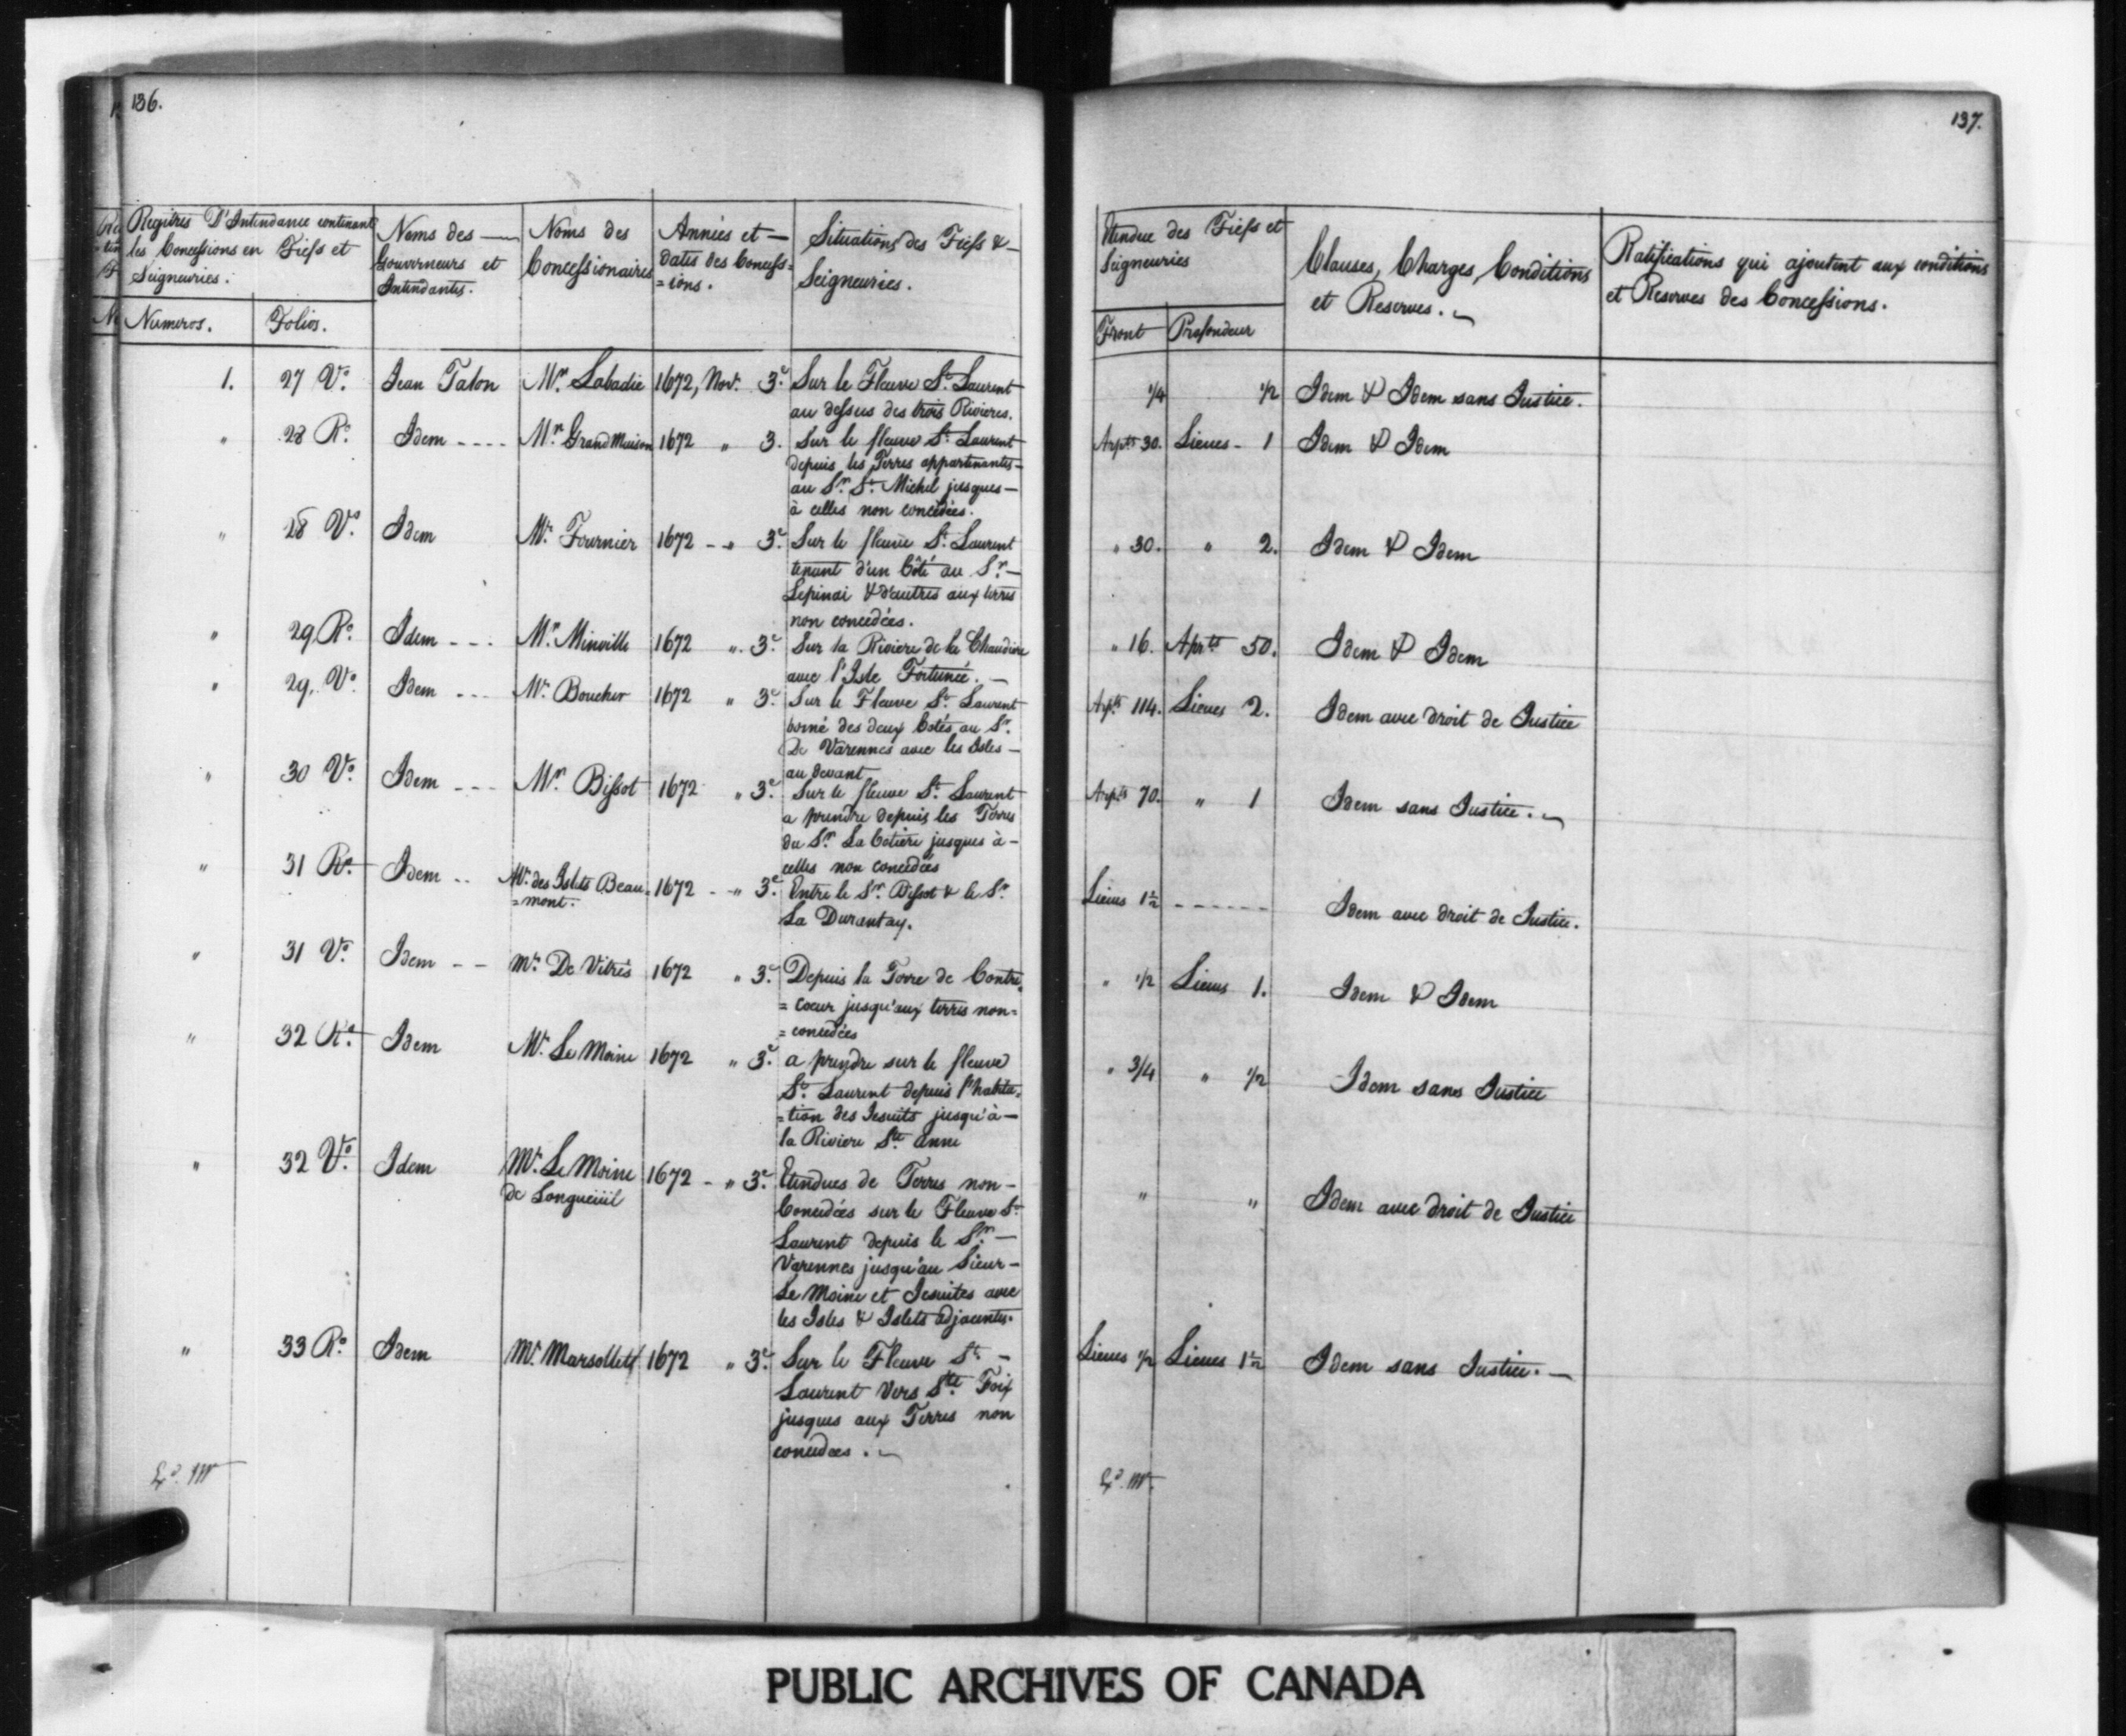 136.
Registres D'Intendance contenant
les Concessions en Fiefs et
Seigneuries.
Numeros.
Folios.
Noms des —
Gouverneurs et
Intendants.
Noms des
Concessionaires
Années et —
Dates des Concess=
=ions.
Situations des Fiefs & —
Seigneuries.
1. 27 Vo. Jean Talon Mr. Labadie 1672, Nov. 3e. Sur le Fleuve St. Laurent
au dessus des trois Rivieres.
" 28 Ro. Idem ---- Mr. GrandMaison 1672 " 3. Sur le fleuve St. Laurent
depuis les Terres appartenantes —
au Sr. St. Michel jusques —
à celles non concedées.
" 28 Vo. Idem Mr. Fournier 1672 -- " 3e. Sur le fleuve St. Laurent
tenant d'un Côté au Sr. —
Lepinai & d'autres aux terres
non concedées.
" 29 Ro. Idem --- Mr. Minville 1672 " 3e. Sur la Riviere de la Chaudiere
avec l'Isle Fortunée. —
" 29. Vo. Idem --- Mr. Boucher 1672 " 3e. Sur le Fleuve St. Laurent
borné des deux Cotés au Sr.
De Varennes avec les Isles —
au devant
" 30 Vo. Idem --- Mr. Bissot 1672 " 3e. Sur le fleuve St. Laurent
a prendre depuis les Terres
du Sr. La Cotiere jusques à —
celles non concedées
" 31 Ro. Idem -- Mr. des Islets Beau= 1672 -- " 3e. Entre le Sr. Bissot & le Sr.
=mont.
La Durantay.
" 31 Vo. Idem -- Mr. De Vitrés 1672 " 3e. Depuis la Terre de Contre=
=coeur jusqu'aux terres non=
=concedées
" 32 Ro. Idem Mr. Le Moine 1672 " 3e. a prendre sur le fleuve
St. Laurent depuis l'habita=
=tion des Jesuits jusqu'à —
la Riviere Ste. anne
" 32 Vo. Idem Mr. Le Moine 1672 - " 3e. Etendues de Terres non —
de Longueüil
Concedées sur le Fleuve St.
Laurent depuis le Sr. —
Varennes jusqu'au Sieur —
Le Moine et Jesuites avec
les Isles & Islets adjacentes.
" 33 Ro. Idem Mr. Marsollett 1672 " 3e. Sur le Fleuve St. —
Laurent Vers Ste. Foix
jusques aux Terres non
concedees. —
137.
Etendue des Fiefs et
Seigneuries
Front
Profondeur
Clauses, Charges, Conditions
et Reserves. —
Ratifications qui ajoutent aux conditions
et Reserves des Concessions.
1/4 1/2 Idem & Idem sans Justice.
Arpts 30. Lieues - 1 Idem & Idem
" 30. " 2. Idem & Idem
" 16. Aprts 50. Idem & Idem
Arpts 114. Lieues 2. Idem avec droit de Justice
Arpts 70. " 1 Idem sans Justice. —
Lieues 1 1/2 ------ Idem avec droit de Justice.
" 1/2 Lieues 1. Idem & Idem
" 3/4 " 1/2 Idem sans Justice
" " Idem avec droit de Justice
Lieues 1/2 Lieues 1 1/2 Idem sans Justice. —
PUBLIC ARCHIVES OF CANADA